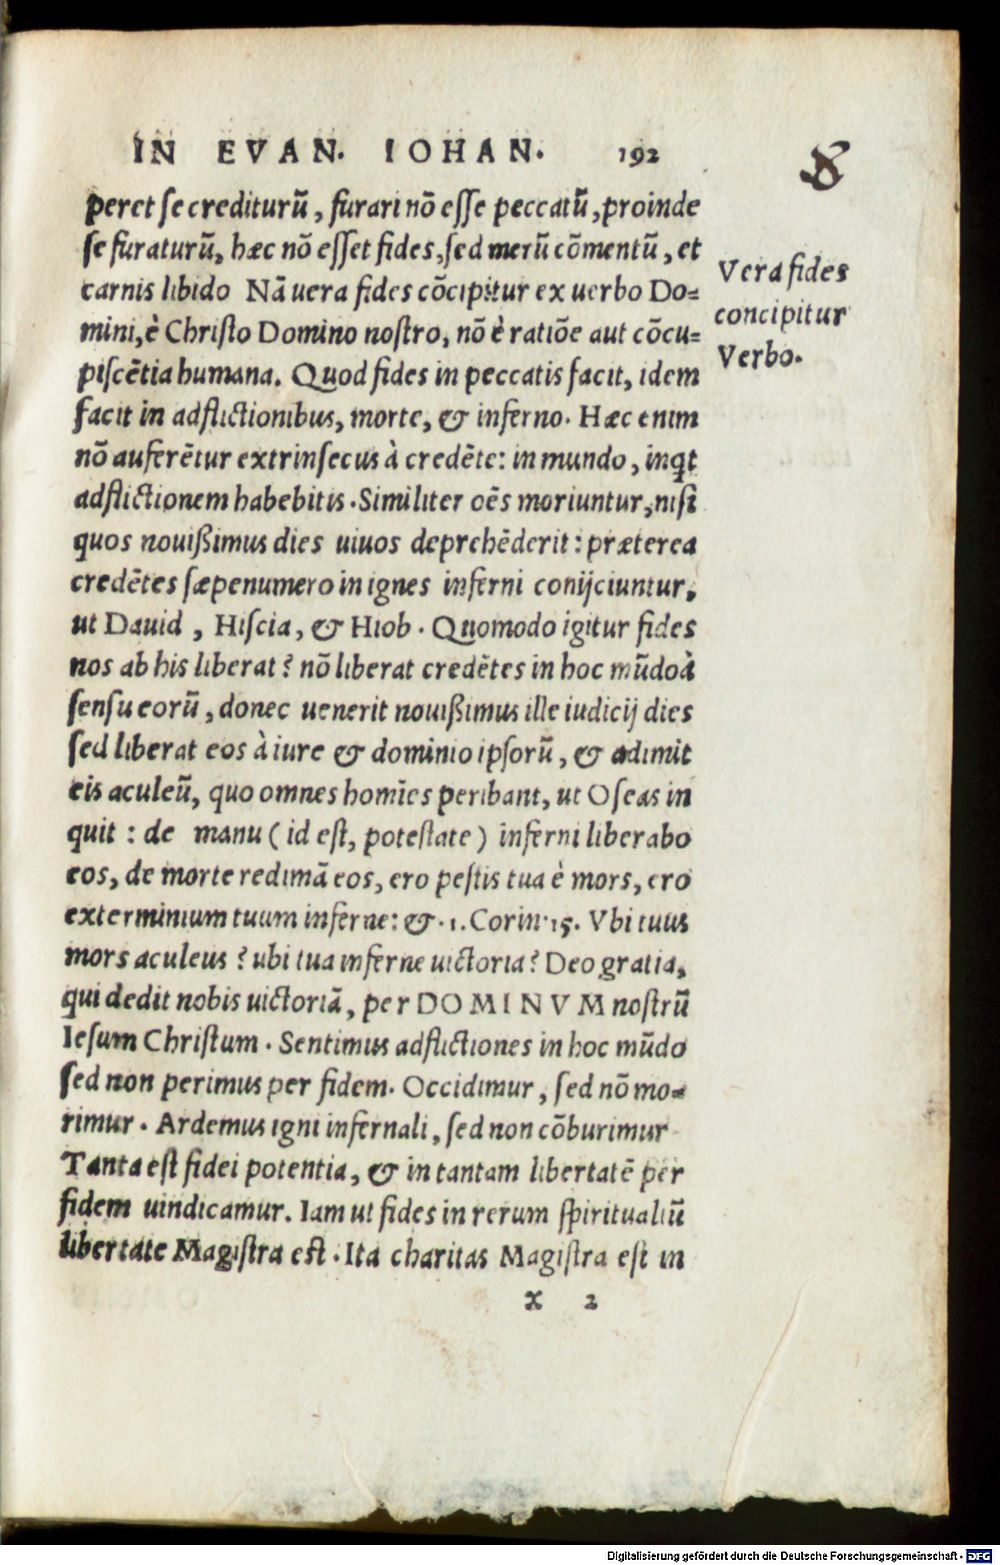 IN EVAN. IOHAN. 192
peret se crediturū, furari nō esse peccatū, proinde
se furaturū, hæc nō esset fides, sed merū cōmentū, et
carnis libido Nā uera fides cōcipitur ex uerbo Do=
mini, è Christo Domino nostro, nō è ratiōe aut cōcu=
piscētia humana. Quod fides in peccatis facit, idem
facit in adflictionibus, morte, & inferno. Hæc enim
nō auferētur extrinsecus à credēte: in mundo, inqt
adflictionem habebitis. Similiter oēs moriuntur, nisi
quos nouißimus dies uiuos deprehēderit: præterea
credētes sæpenumero in ignes inferni conijciuntur,
ut Dauid, Hiscia, & Hiob. Quomodo igitur fides
nos ab his liberat? nō liberat credētes in hoc mūdo à
sensu eorū, donec uenerit nouißimus ille iudicij dies
sed liberat eos à iure & dominio ipsorū, & adimit
eis aculeū, quo omnes homīes peribant, ut Oseas in
quit: de manu (id est, potestate) inferni liberabo
eos, de morte redimā eos, ero pestis tua è mors, ero
exterminium tuum inferne: &. 1. Corin. 15. Vbi tuus
mors aculeus? ubi tua inferne uictoria? Deo gratia,
qui dedit nobis uictoriā, per DOMINVM nostrū
Iesum Christum. Sentimus adflictiones in hoc mūdo
sed non perimus per fidem. Occidimur, sed nō mo=
rimur. Ardemus igni infernali, sed non cōburimur
Tanta est fidei potentia, & in tantam libertatē per
fidem uindicamur. Iam ut fides in rerum spiritualiū
libertate Magistra est. Ita charitas Magistra est in
x 2
Vera fides
concipitur
Verbo.
Digitalisierung gefördert durch die Deutsche Forschungsgemeinschaft - DFG